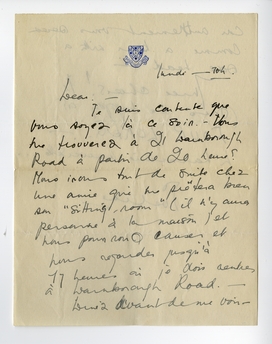 lundi - 10h
Dear. -
Je suis contente que
vous soyez ici ce soir. - Vous
me trouverez à 21 Warnborough
Road à partir de 20 heures
Nous irons tout de suite chez
une amie qui me prêtera bien
son "sitting-room" (il n'y aura
personne à la maison) et
nous pourrons causer et
nous regarder jusqu'à
où je dois rentrer
à Warnborough Road. -
avant de me voir -